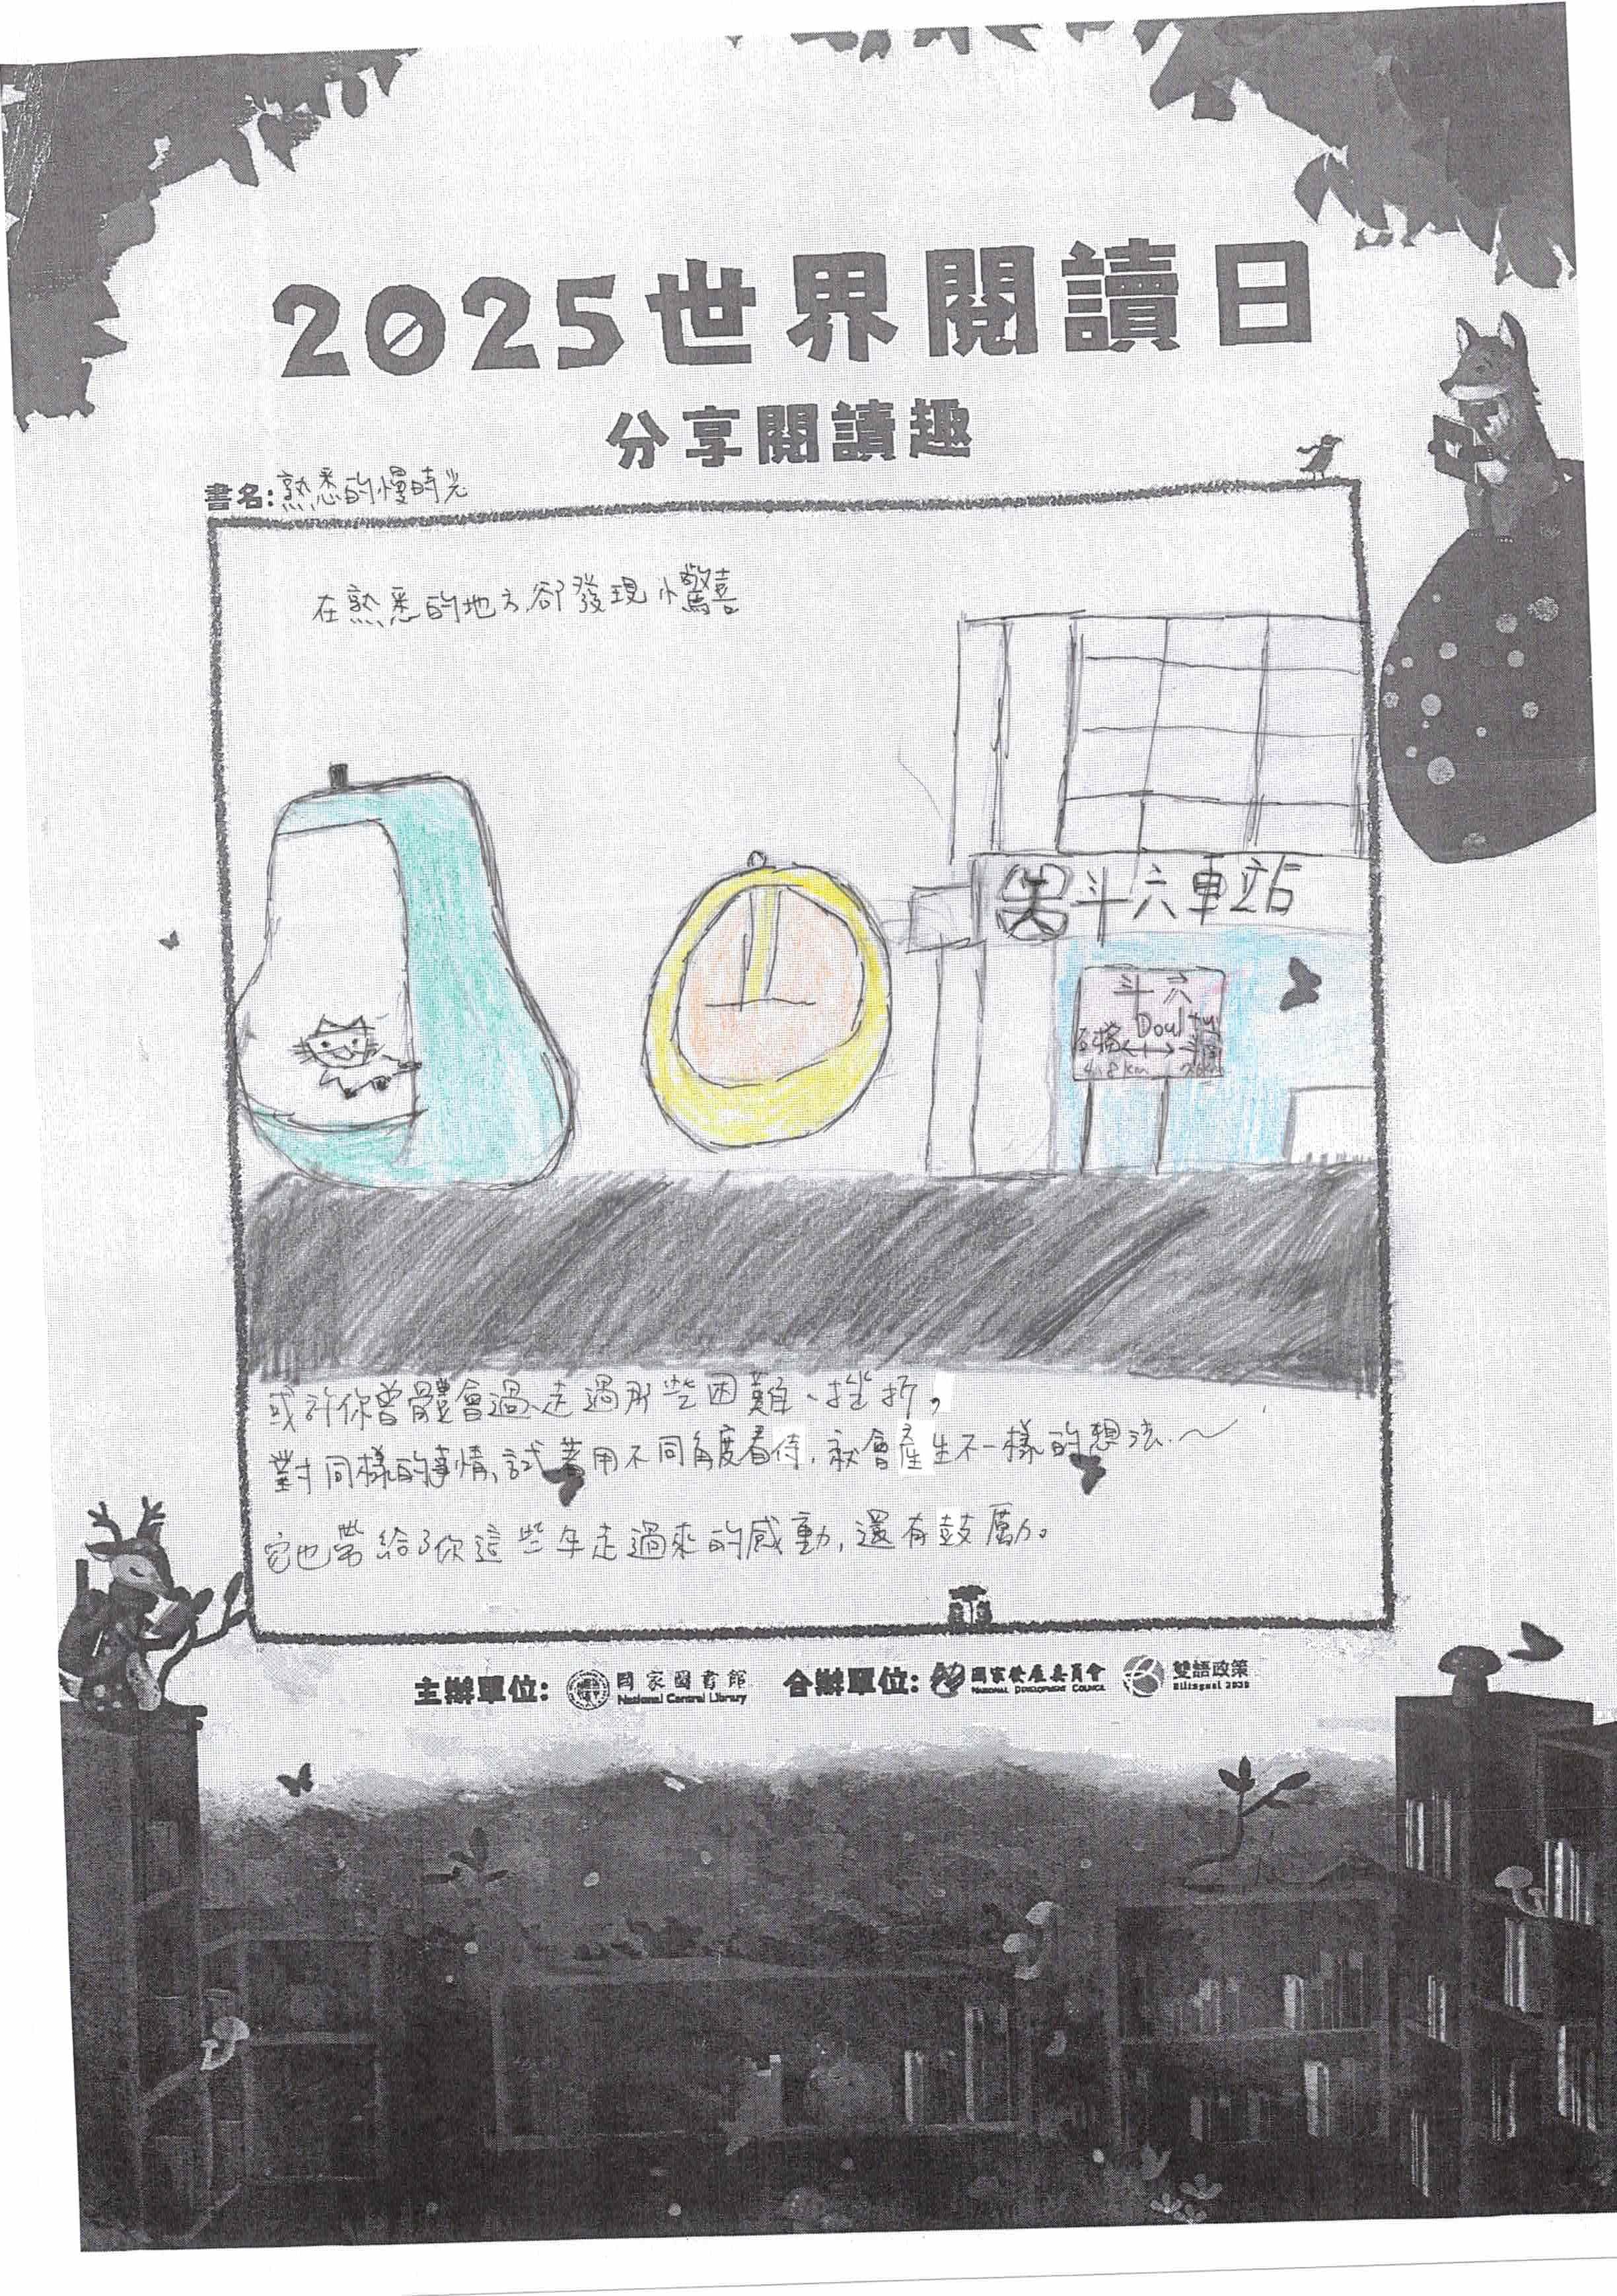 2025世界閱讀日
分享閱讀趣
書名:熟悉的慢時光
在熟悉的地方,卻發現小驚喜
斗六車站
斗六
Douliu
石榴 斗南
4.8km
或許你曾體會過、走過那些困難、挫折,
對同樣的事情,試著用不同角度看待,就會產生不一樣的想法.~
它也帶給了你這些年走過來的感動,還有鼓勵。
主辦單位: 國家圖書館 National Central Library 合辦單位: 國家發展委員會 NATIONAL DEVELOPMENT COUNCIL 雙語政策 Bilingual 2030